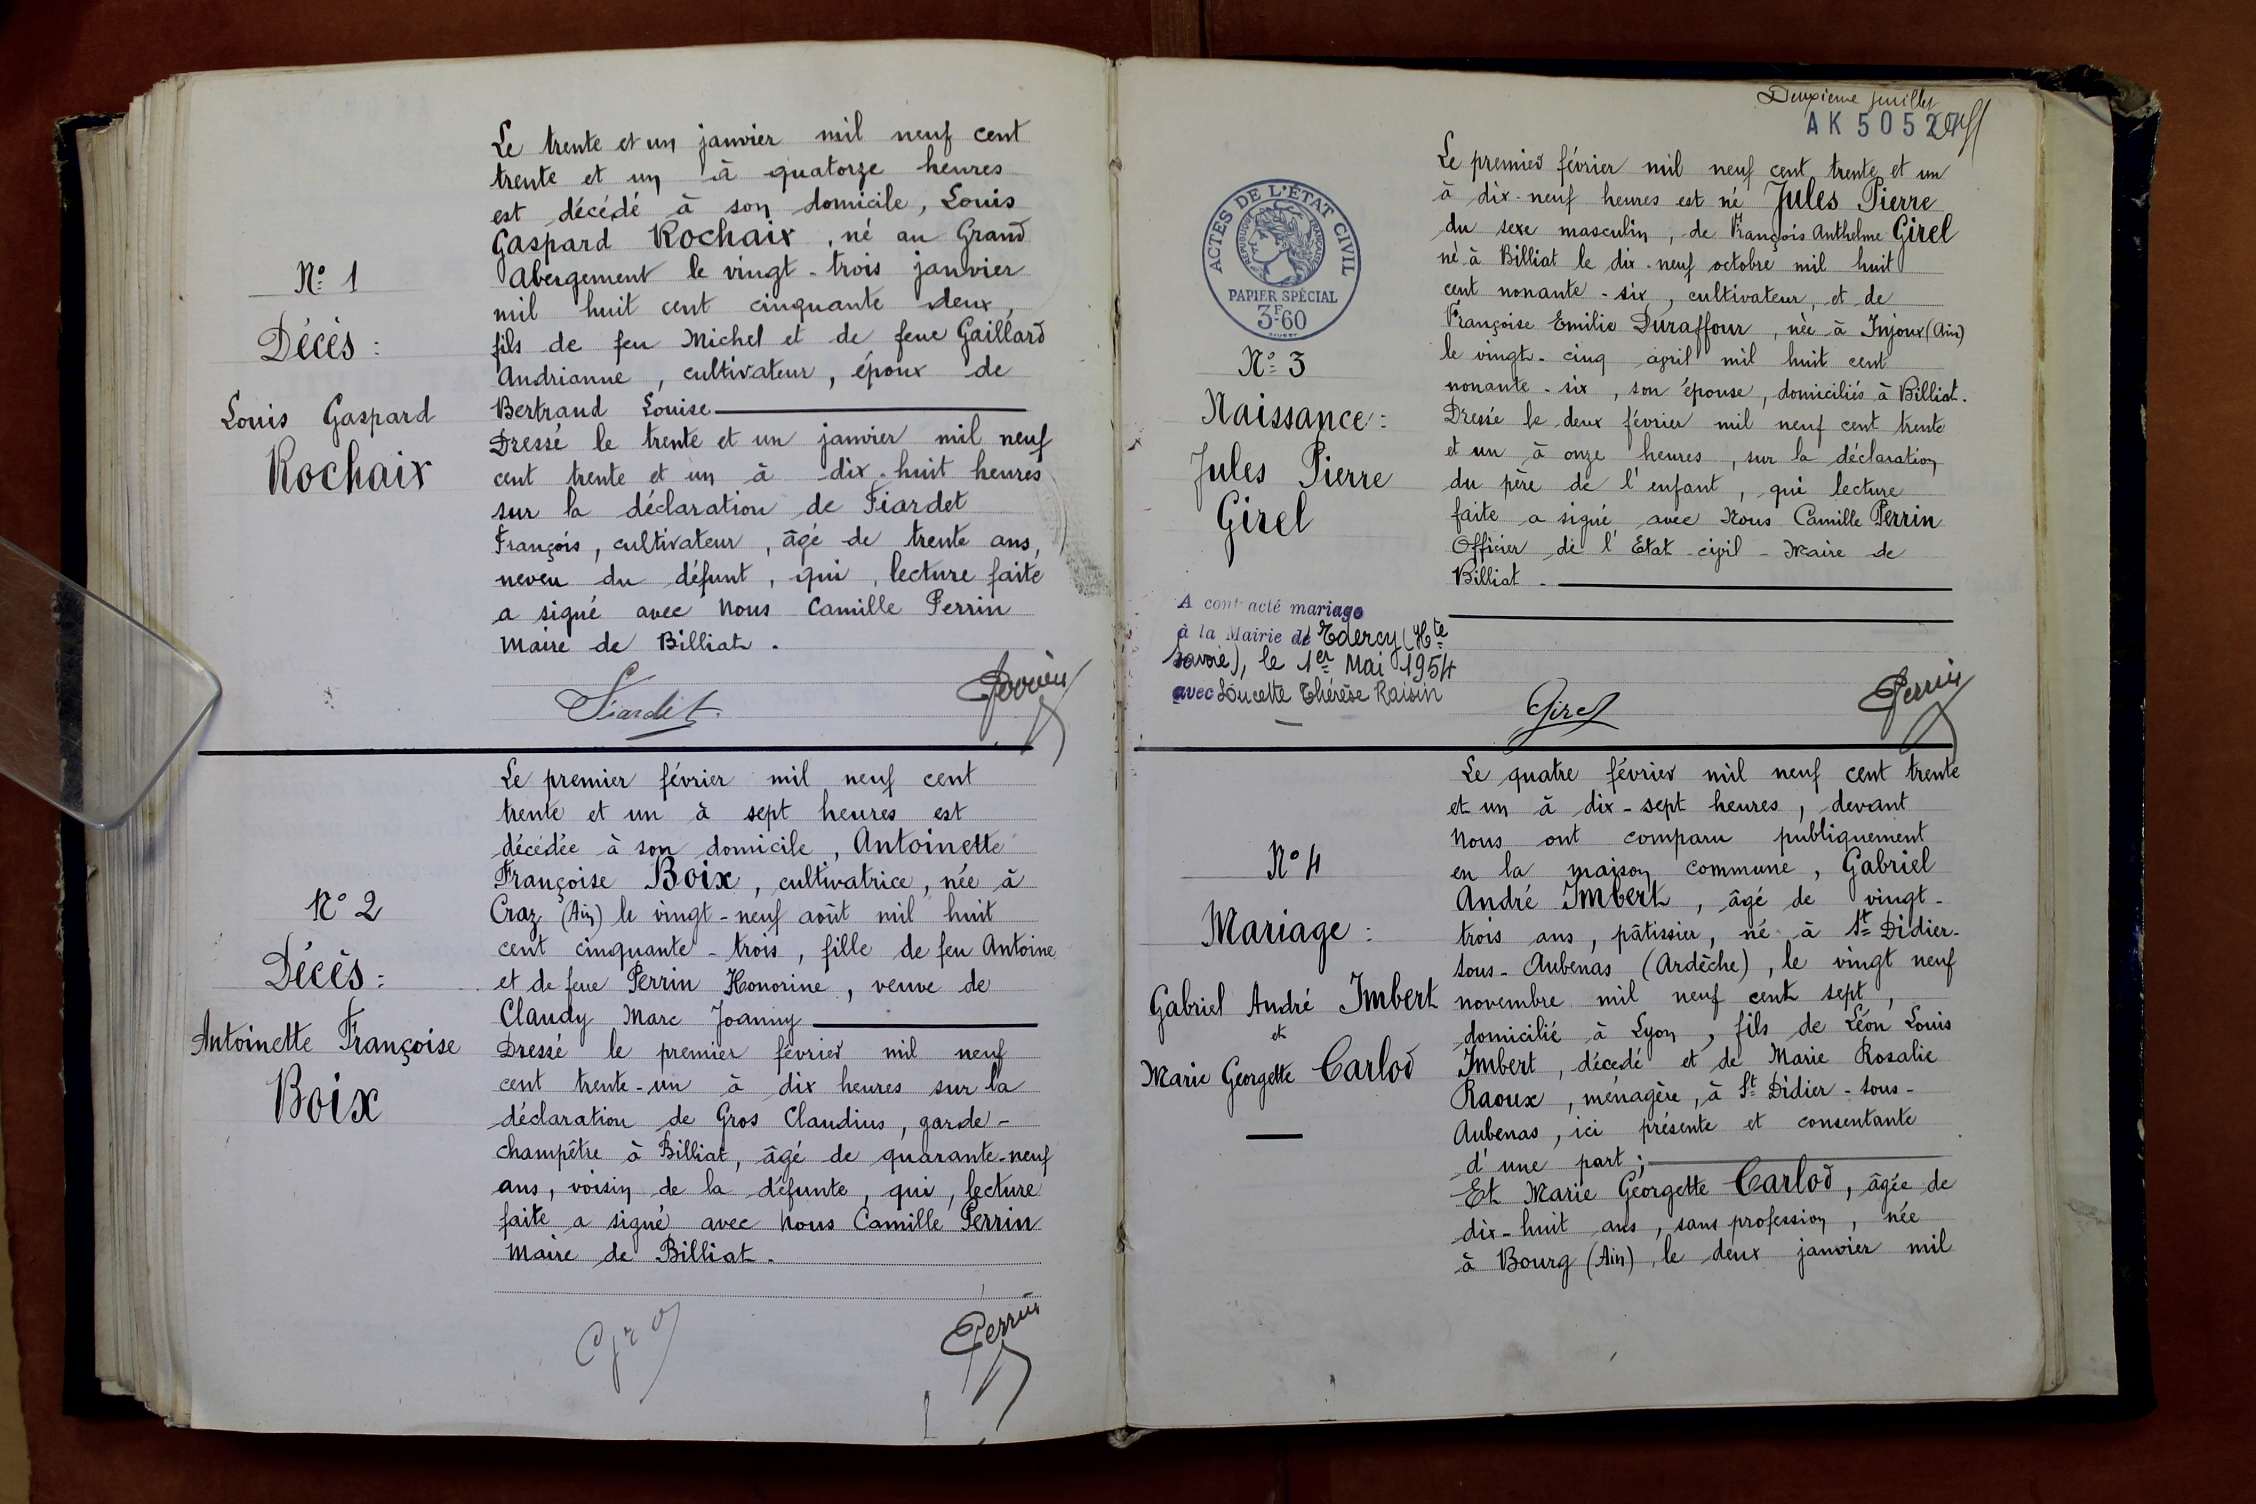 Le trente et un janvier mil neuf cent
trente et un à quatorze heures
est décédé à son domicile, Louis
Gaspard Rochaix, né au Grand
Abergement le vingt-trois janvier
mil huit cent cinquante deux,
fils de feu Michel et de feue Gaillard
Andrianne, cultivateur, époux de
Bertrand Louise
Dressé le trente et un janvier mil neuf
cent trente et un à dix-huit heures
sur la déclaration de Fiardet
François, cultivateur, âgé de trente ans,
neveu du défunt, qui, lecture faite
a signé avec Nous Camille Perrin
Maire de Billiat.
N° 1
Décès :
Louis Gaspard
Rochaix
Fiardet
Perrin
Le premier février mil neuf cent
trente et un à sept heures est
décédée à son domicile, Antoinette
Françoise Boix, cultivatrice, née à
Craz (Ain) le vingt-neuf août mil huit
cent cinquante-trois, fille de feu Antoine
et de feue Perrin Honorine, veuve de
Claudy Marc Joanny
Dressé le premier février mil neuf
cent trente-un à dix heures sur la
déclaration de Gros Claudius, garde-
champêtre à Billiat, âgé de quarante-neuf
ans, voisin de la défunte, qui, lecture
faite a signé avec Nous Camille Perrin
Maire de Billiat.
N° 2
Décès :
Antoinette Françoise
Boix
Gros
Perrin
Deuxième feuillet
AK 5052
ACTES DE L'ÉTAT CIVIL
RÉPUBLIQUE FRANÇAISE
PAPIER SPÉCIAL
3F60
N° 3
Naissance :
Jules Pierre
Girel
A contracté mariage
à la Mairie de (Hte
Savoie), le 1er Mai 1954
avec Loucette Thérèse Raisin
Le premier février mil neuf cent trente et un
à dix-neuf heures est né Jules Pierre
du sexe masculin, de François Anthelme Girel
né à Billiat le dix-neuf octobre mil huit
cent nonante-six, cultivateur, et de
Françoise Emilie Duraffour, née à Injoux (Ain)
le vingt-cinq april mil huit cent
nonante-six, son épouse, domiciliés à Billiat.
Dressé le deux février mil neuf cent trente
et un à onze heures, sur la déclaration
du père de l'enfant, qui lecture
faite a signé avec Nous Camille Perrin
Officier de l'Etat-civil - Maire de
Billiat.
Girel
Perrin
N° 4
Mariage :
Gabriel André Imbert
et
Marie Georgette Carlod
Le quatre février mil neuf cent trente
et un à dix-sept heures, devant
Nous ont comparu publiquement
en la maison commune, Gabriel
André Imbert, âgé de vingt-
trois ans, pâtissier, né à St Didier-
sous-Aubenas (Ardèche), le vingt neuf
novembre mil neuf cent sept,
domicilié à Lyon, fils de Léon Louis
Imbert, décédé et de Marie Rosalie
Raoux, ménagère, à St Didier-sous-
Aubenas, ici présente et consentante
d'une part;
Et Marie Georgette Carlod, âgée de
dix-huit ans, sans profession, née
à Bourg (Ain), le deux janvier mil